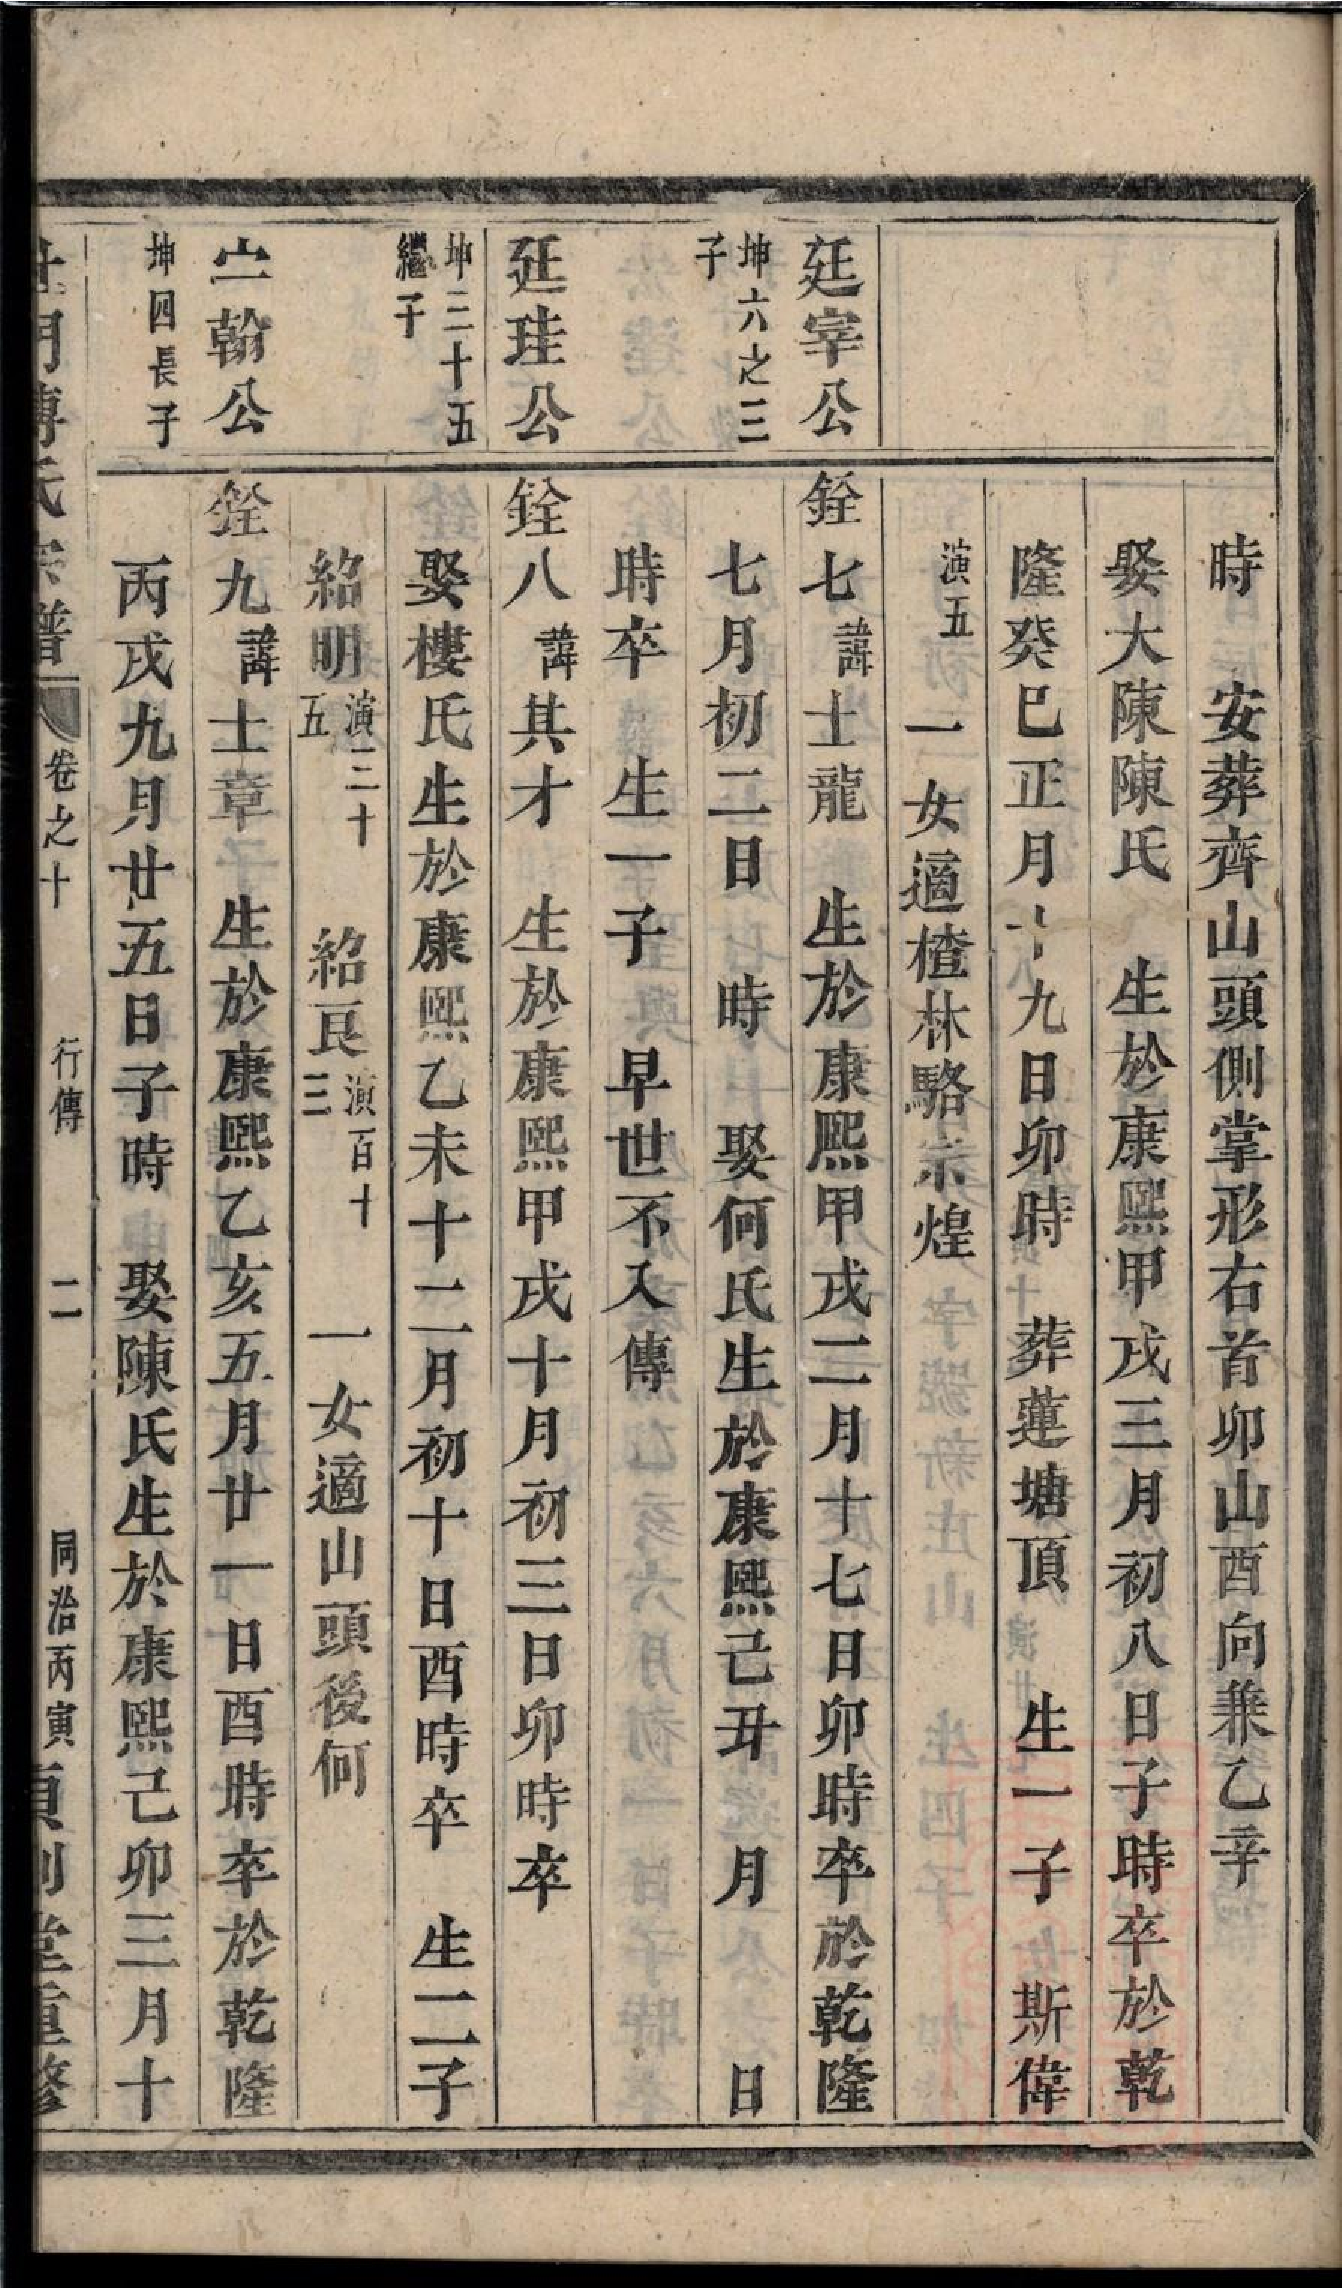 時　安葬齊山頭側掌形右首卯山酉向兼乙辛
娶大陳陳氏　生於康熙甲戌三月初八日子時卒於乾
隆癸巳正月十九日卯時　葬蓮塘頂　生一子　斯偉
演五　一女適楂林駱宗煌
廷宰公
坤六之三
子
銓七諱士龍　生於康熙甲戌二月十七日卯時卒於乾隆
七月初二日　時　娶何氏生於康熙己丑　月　日
時卒　生一子　早世不入傳
廷珪公
坤三十五
繼子
銓八諱其才　生於康熙甲戌十月初三日卯時卒
娶樓氏生於康熙乙未十二月初十日酉時卒　生二子
紹明演三十五　紹良演百十三　一女適山頭後何
翰公
坤四長子
銓九諱士章　生於康熙乙亥五月廿一日酉時卒於乾隆
丙戌九月廿五日子時　娶陳氏生於康熙己卯三月十
門傅氏宗譜　卷之十　行傳　二　同治丙寅　堂重修